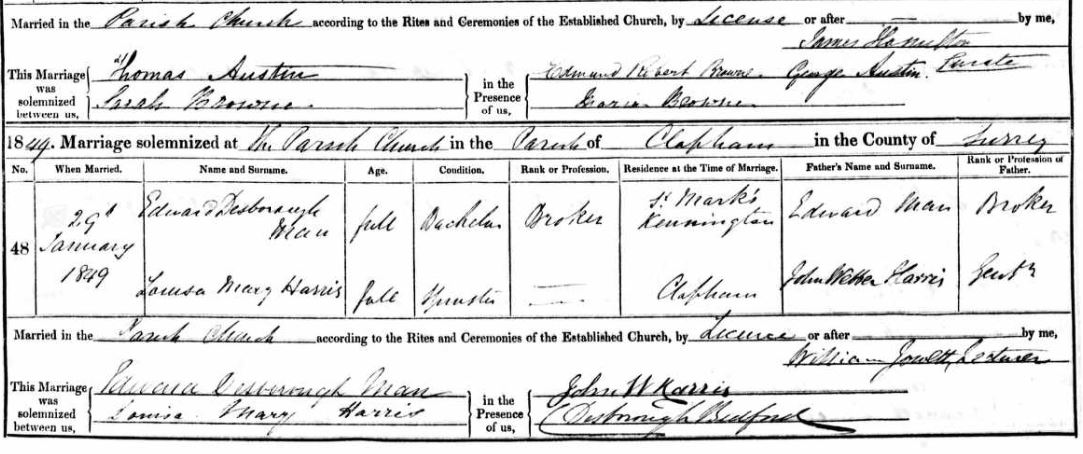 Married in the Parish Church according to the Rites and Ceremonies of the Established Church, by License or after — by me,
James Hamilton
Curate
This Marriage was solemnized between us, Thomas Austin Sarah Browne in the Presence of us, Edmund Robert Browne George Austin Maria Browne
1849. Marriage solemnized at The Parish Church in the Parish of Clapham in the County of Surrey
No. When Married. Name and Surname. Age. Condition. Rank or Profession. Residence at the Time of Marriage. Father's Name and Surname. Rank or Profession of Father.
48 29th January 1849 Edward Desborough Man full Bachelor Broker St Mark's Kennington Edward Man Broker
Louisa Mary Harris full Spinster — Clapham John Webber Harris Gentn
Married in the Parish Church according to the Rites and Ceremonies of the Established Church, by Licence or after — by me,
William Jowett, Lecturer
This Marriage was solemnized between us, Edward Desborough Man Louisa Mary Harris in the Presence of us, John W Harris Desborough Bedford